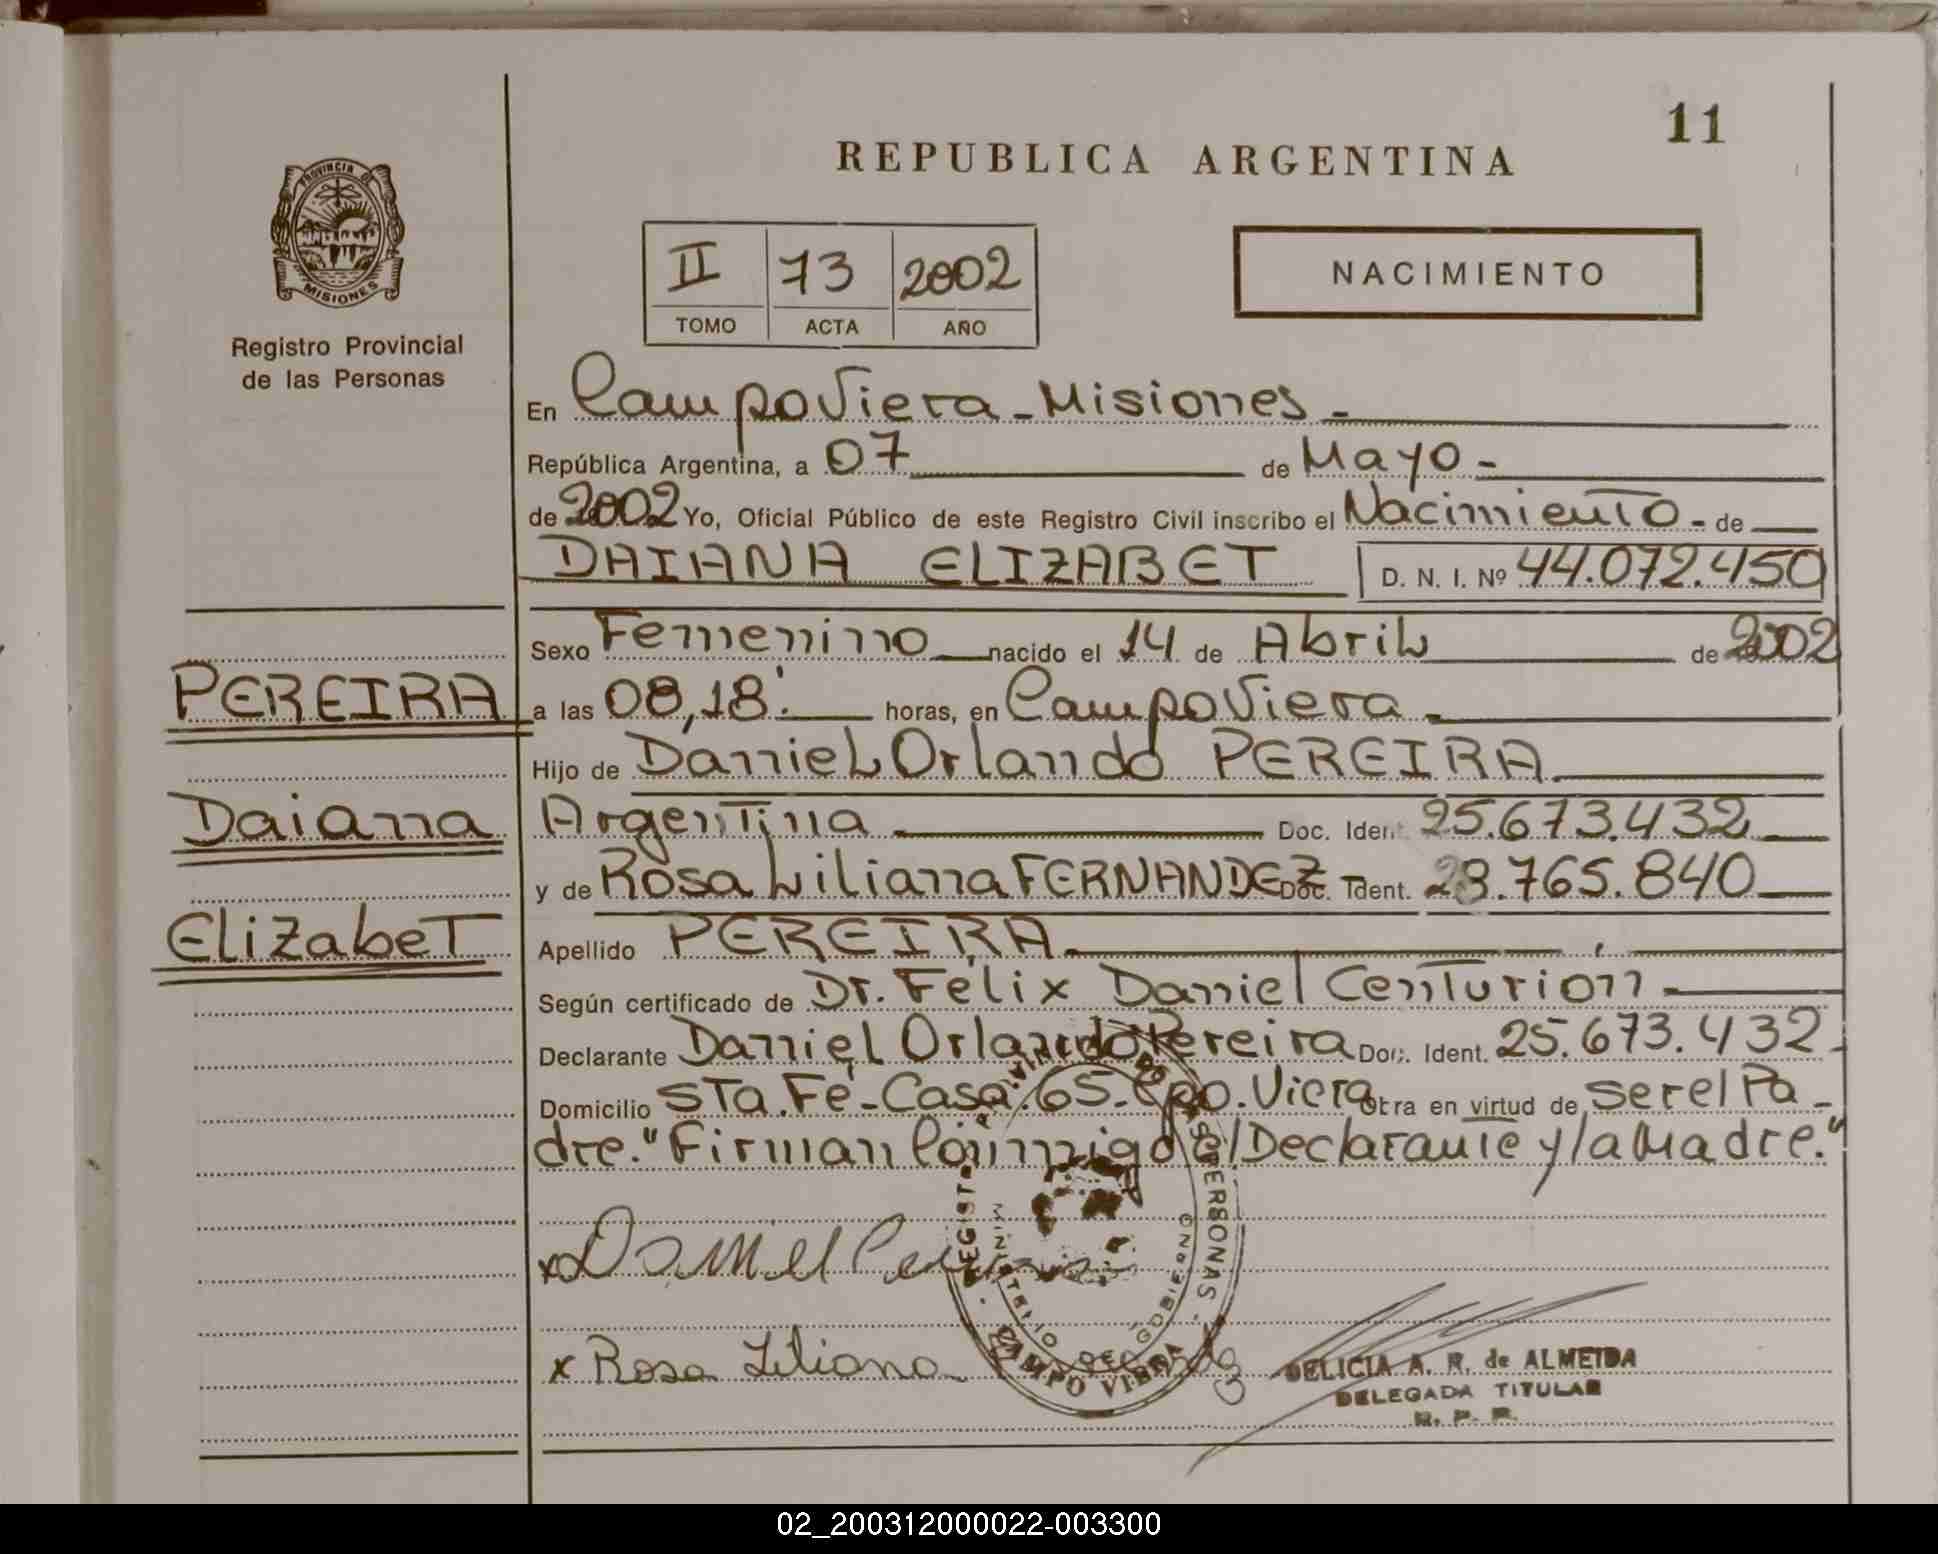 11
REPUBLICA ARGENTINA
PROVINCIA DE
MISIONES
Registro Provincial
de las Personas
II 73 2002
TOMO ACTA AÑO
NACIMIENTO
En Campo Viera - Misiones -
República Argentina, a 07 de Mayo -
de 2002 Yo, Oficial Público de este Registro Civil inscribo el Nacimiento - de
DAIANA ELIZABET D. N. I. Nº 44.072.450
Sexo Femenino nacido el 14 de Abril de 2002
PEREIRA
a las 08,18' horas, en Campo Viera -
Hijo de Daniel Orlando PEREIRA
Daiana
Argentina Doc. Ident. 25.673.432
y de Rosa Liliana FERNANDEZ - Doc. Ident. 28.765.840
Elizabet
Apellido PEREIRA
Según certificado de Dr. Félix Daniel Centurion -
Declarante Daniel Orlando Pereira Doc. Ident. 25.673.432 -
Domicilio Sta. Fé - Casa. 65 - Cpo. Viera Obra en virtud de ser el Pa-
dre. "Firman Conmigo el Declarante y la Madre."
x Daniel Pereira
x Rosa Liliana
REGISTRO PROVINCIAL DE LAS PERSONAS
MINISTERIO DE GOBIERNO
CAMPO VIERA
DELICIA A. R. de ALMEIDA
DELEGADA TITULAR
R. P. P.
02_200312000022-003300